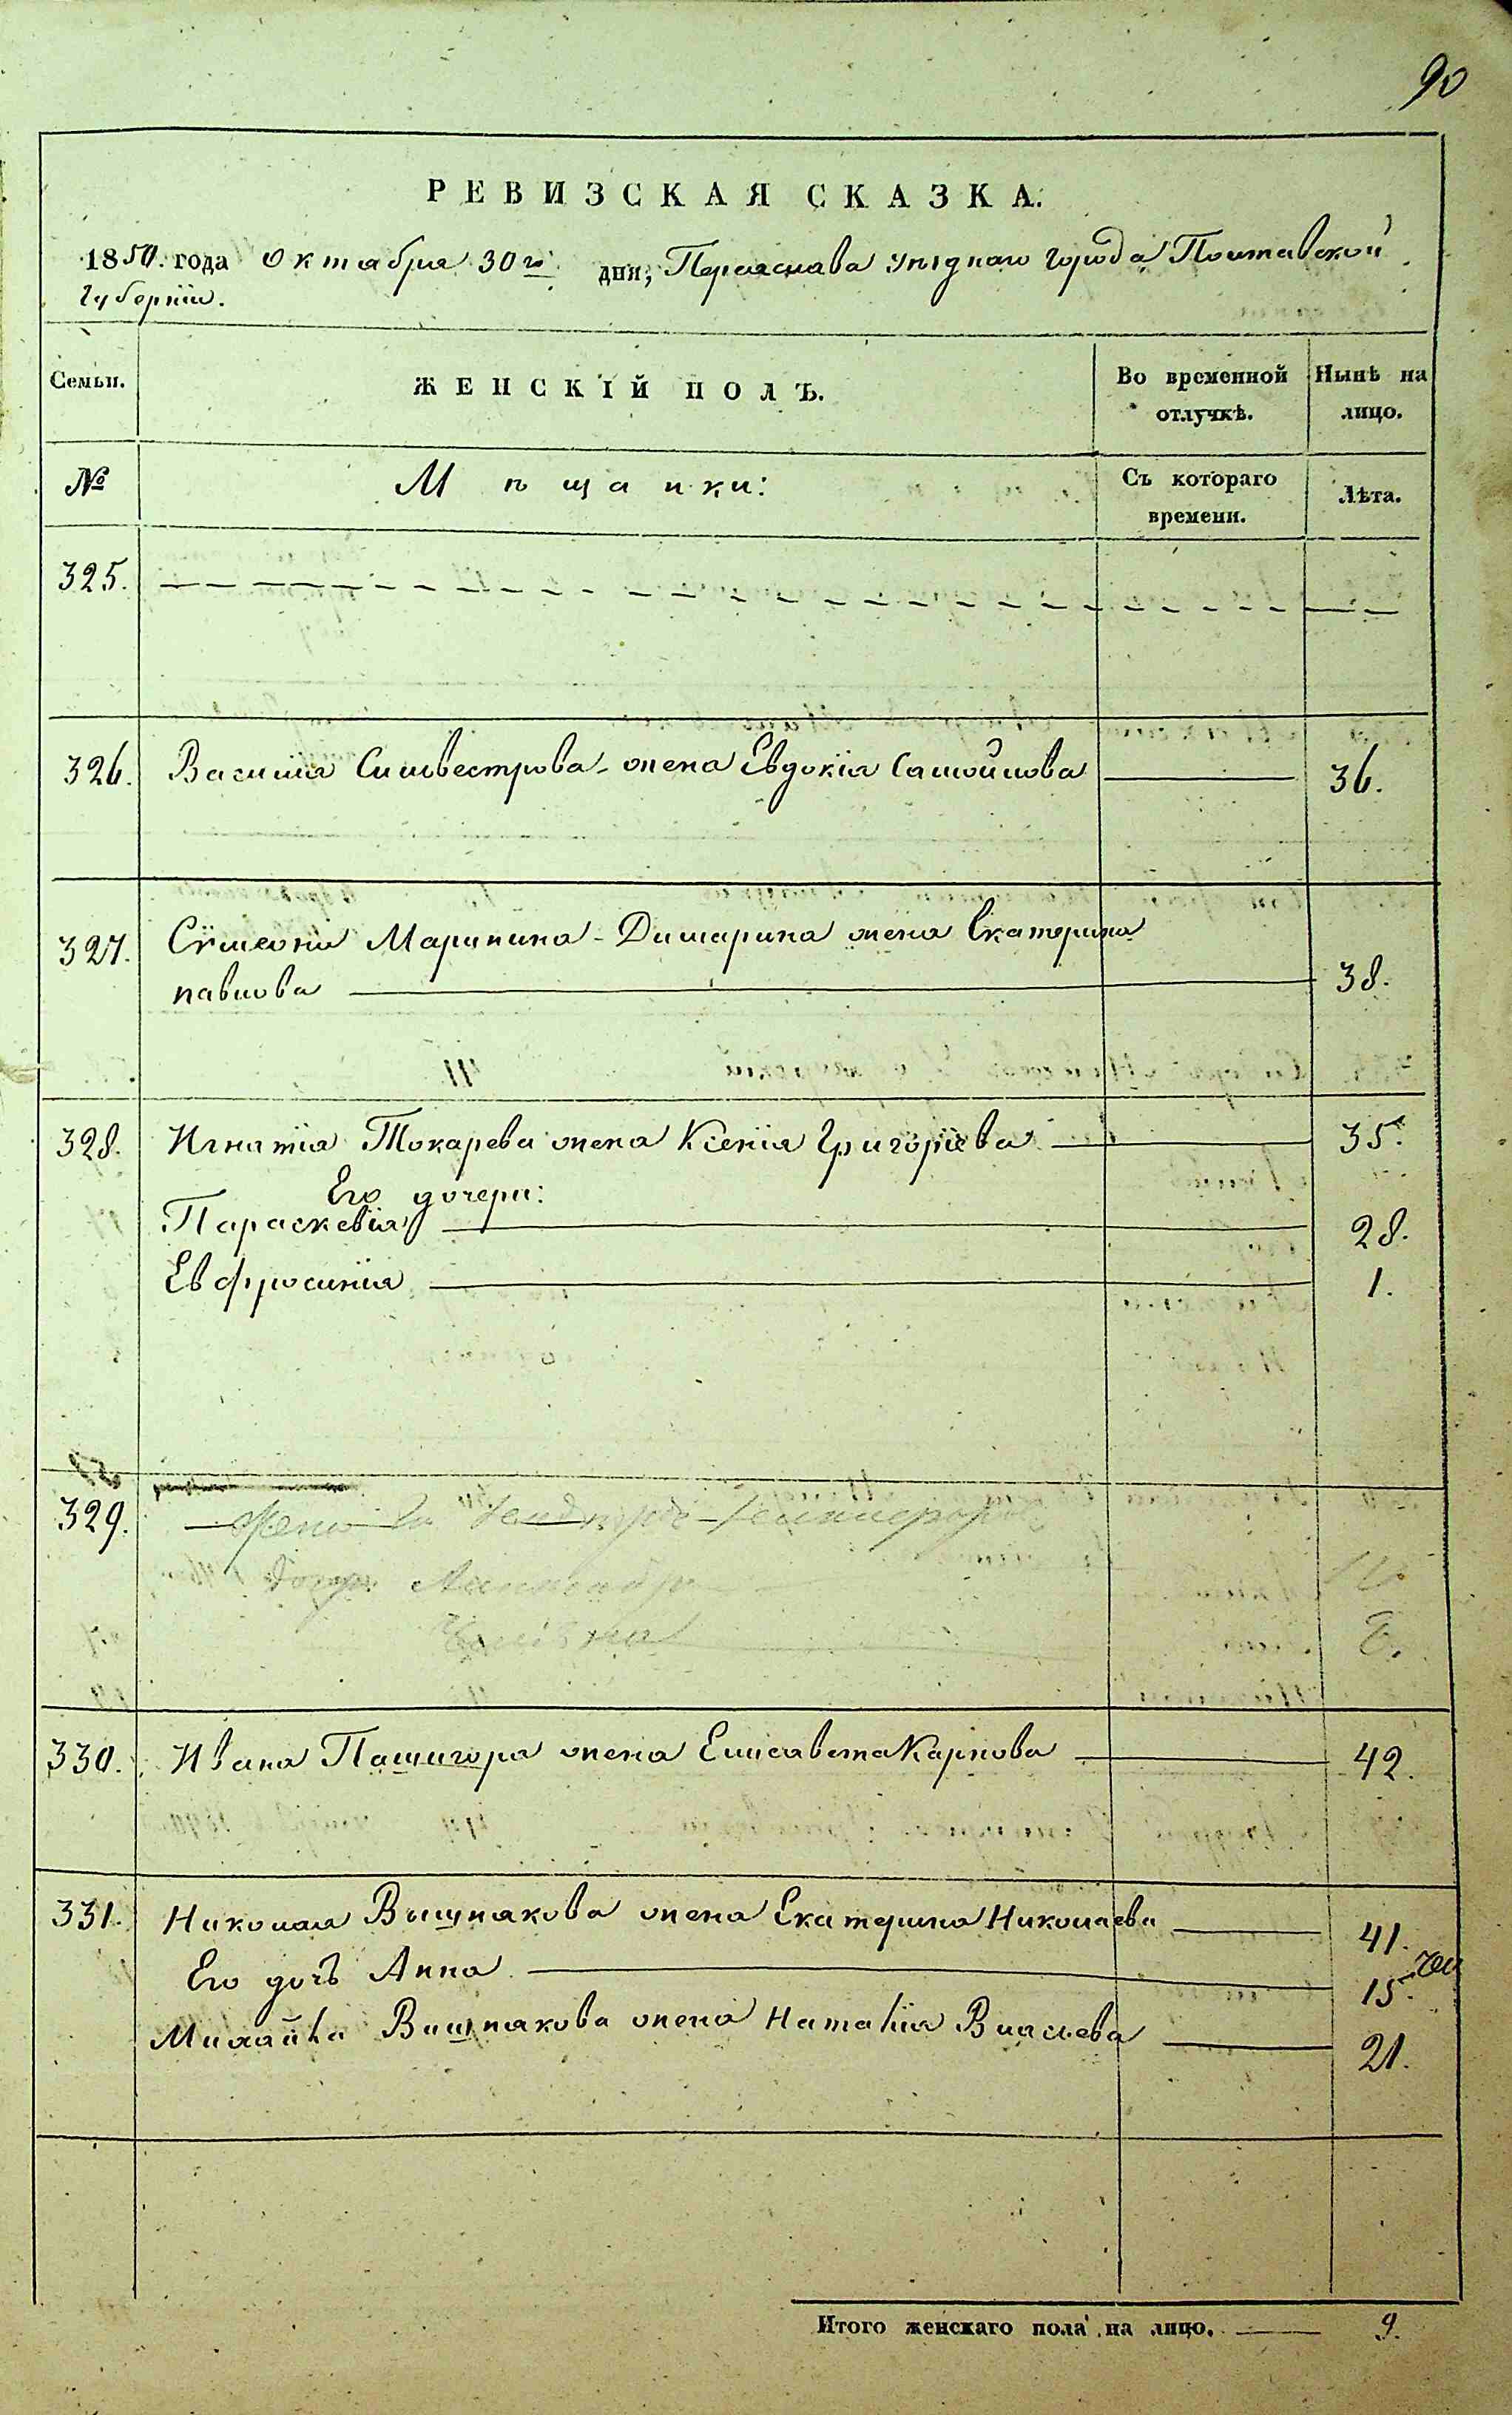 90
РЕВИЗСКАЯ СКАЗКА.
1850. года Октября 30го дня, Переяслава уѣзднаго города Полтавской
Губерніи.
Семьи. ЖЕНСКІЙ ПОЛЪ. Во временной отлучкѣ. Нынѣ на лицо.
№ Мѣщанки: Съ котораго времени. Лѣта.
325.
326. Василія Сильвестрова жена Евдокія Самойлова 36.
327. Сѵмеона Маринина-Димарина жена Екатерина
павлова 38.
328. Игнатія Токарева жена Ксенія Григоріева 35.
Его дочери:
Параскевія 28.
Евфросинія 1.
329.
330. Ивана Пашигора жена Елисавета Карпова 42.
331. Николая Вишнякова жена Екатерина Николаева 41.
Его дочь Анна 15.
Михайла Вишнякова жена Наталія Власиева 21.
Итого женскаго пола на лицо. 9.